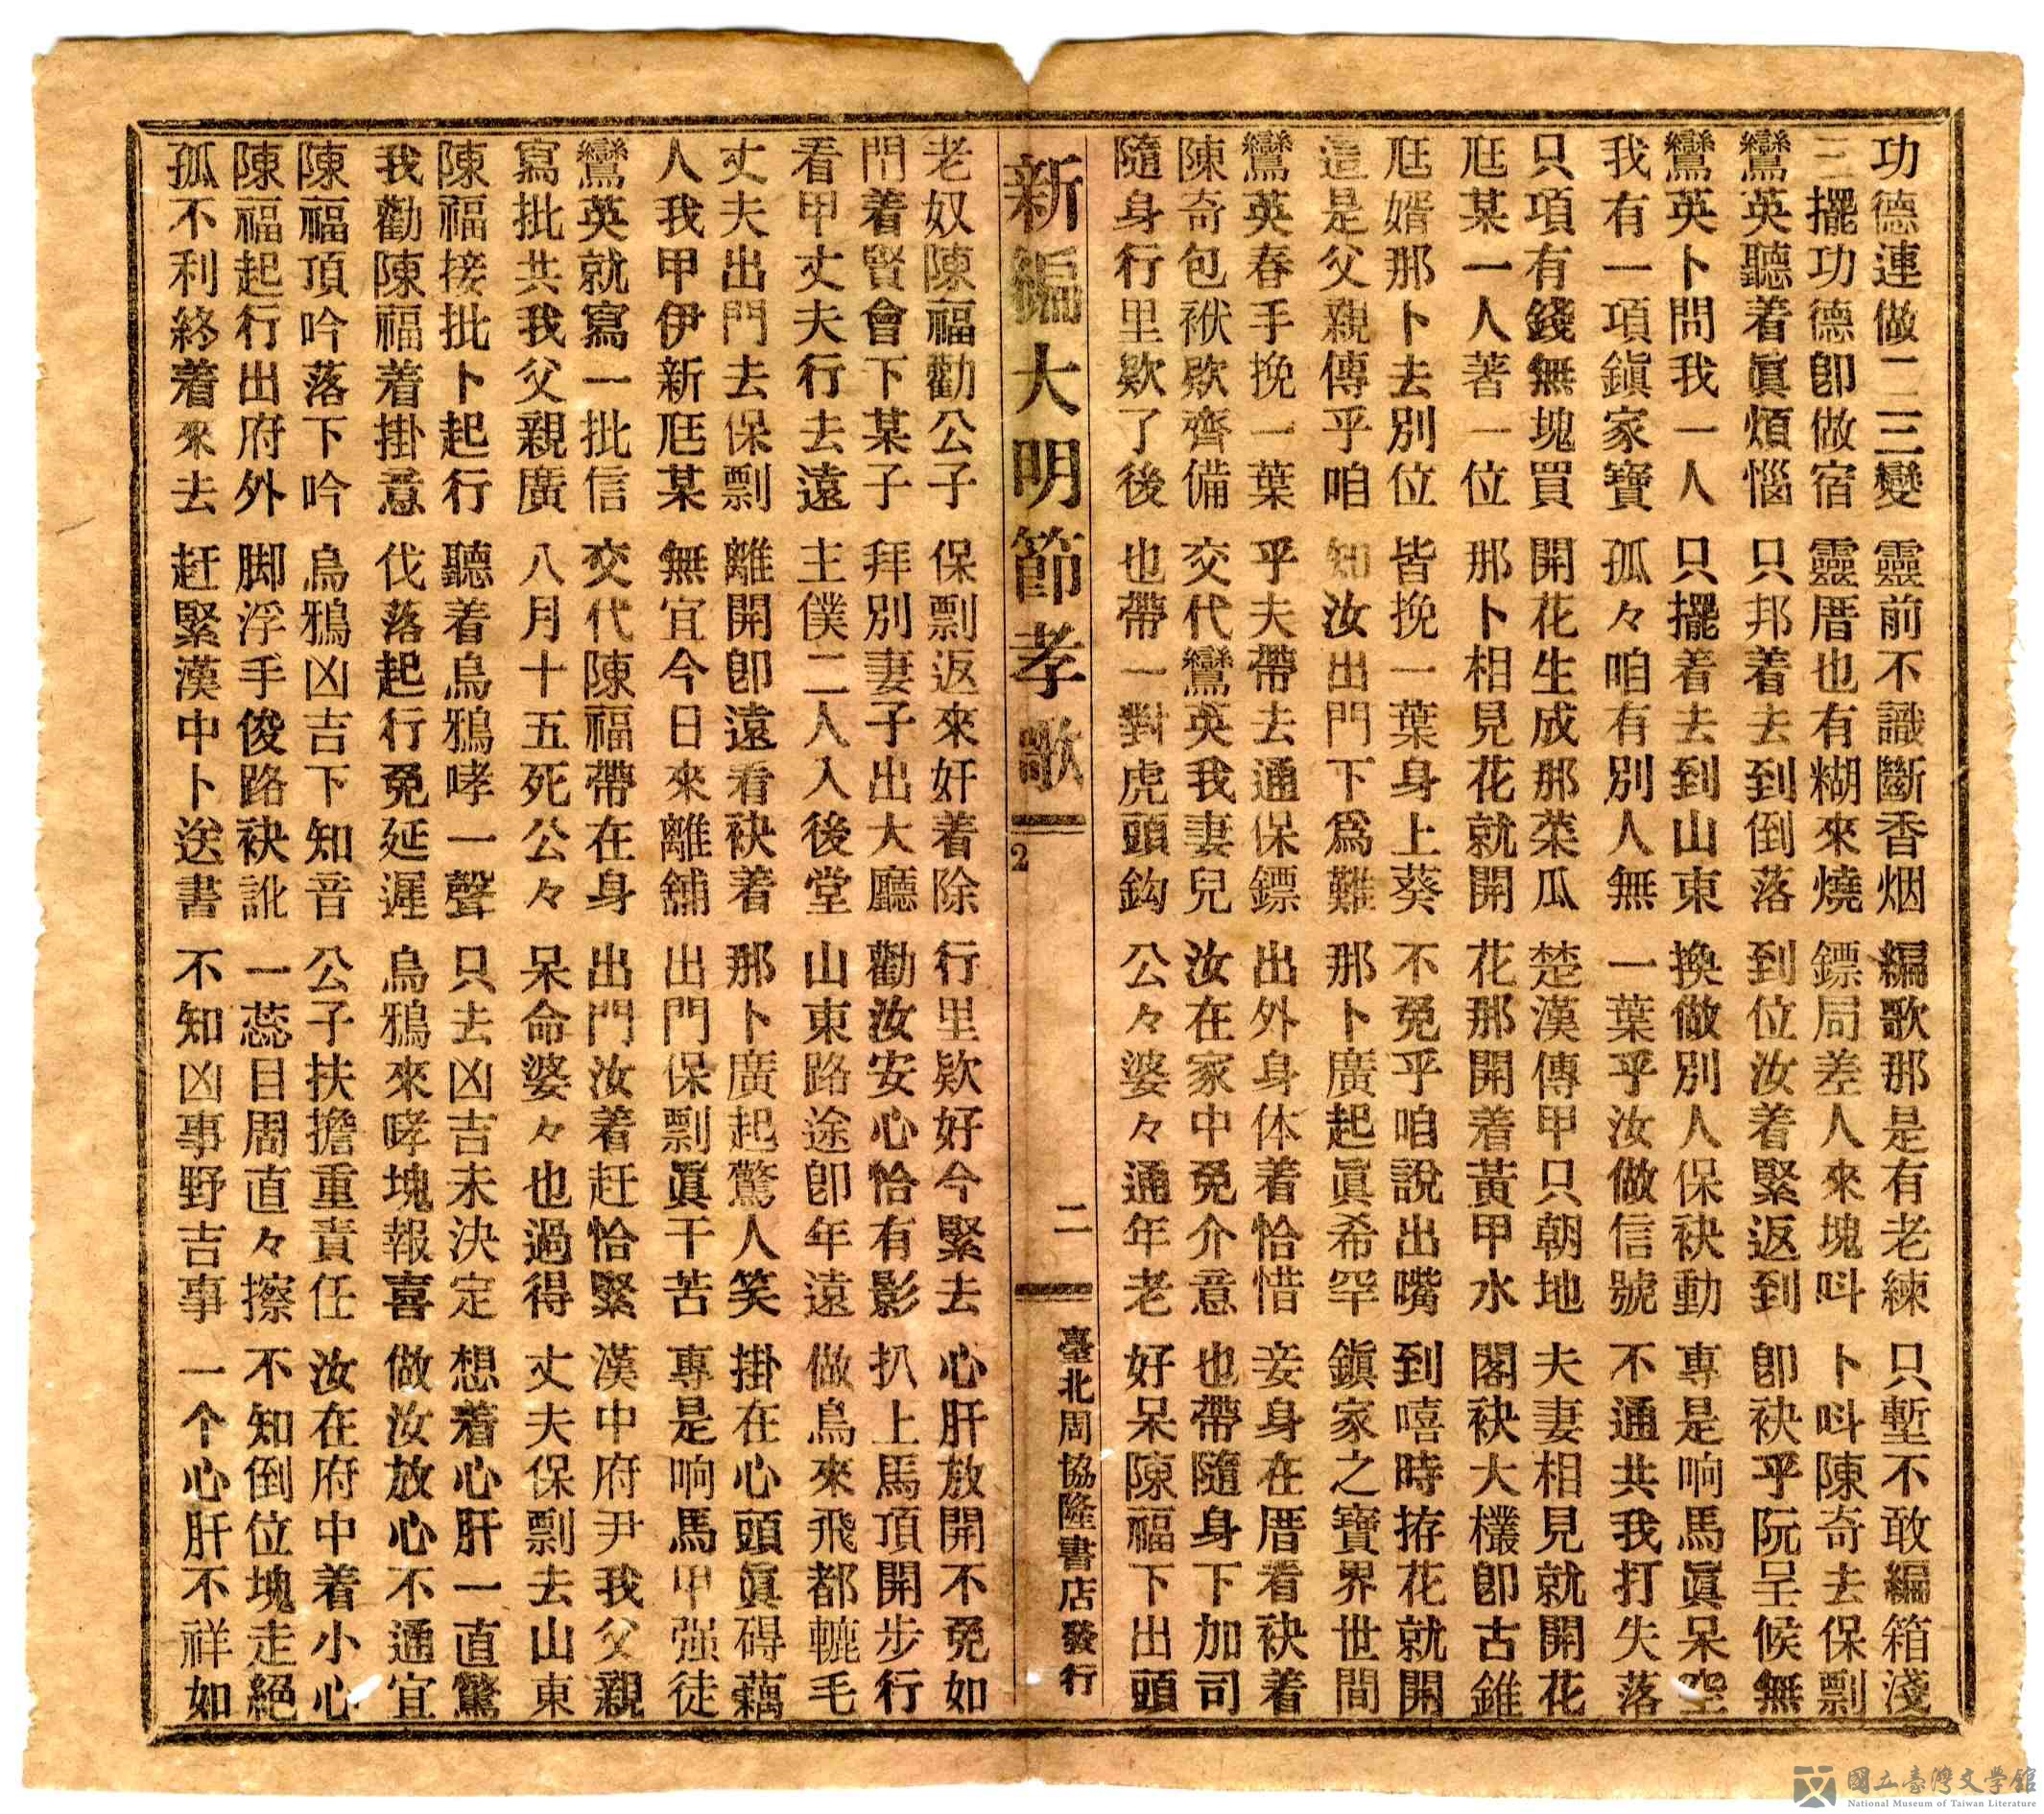 功德連做二三變　靈前不識斷香烟　編歌那是有老練　只塹不敢編箱淺
三擺功德卽做宿　靈厝也有糊來燒　鏢局差人來塊呌　卜呌陳奇去保剽
鸞英聽着眞煩惱　只邦着去到倒落　到位汝着緊返到　卽袂乎阮呈候無
鸞英卜問我一人　只擺着去到山東　換做別人保袂動　專是响馬眞呆空
我有一項鎭家寶　孤々咱有別人無　一葉乎汝做信號　不通共我打失落
只項有錢無塊買　開花生成那菜瓜　楚漢傳甲只朝地　夫妻相見就開花
尫某一人著一位　那卜相見花就開　花那開着黃甲水　閣袂大欉卽古錐
尫婿那卜去別位　皆挽一葉身上葵　不免乎咱說出嘴　到嘻時拵花就開
這是父親傳乎咱　知汝出門下爲難　那卜廣起眞希罕　鎭家之寶界世間
鸞英春手挽一葉　乎夫帶去通保鏢　出外身体着恰惜　妾身在厝看袂着
陳奇包袱欵齊備　交代鸞英我妻兒　汝在家中免介意　也帶隨身下加司
隨身行里欵了後　也帶一對虎頭鈎　公々婆々通年老　好呆陳福下出頭
新編大明節孝歌
2
二
臺北周協隆書店發行
老奴陳福勸公子　保剽返來奸着除　行里欵好今緊去　心肝放開不免如
閂着賢會下某子　拜別妻子出大廳　勸汝安心恰有影　扒上馬頂開步行
看甲丈夫行去遠　主僕二人入後堂　山東路途卽年遠　做鳥來飛都轆毛
丈夫出門去保剽　離開卽遠看袂着　那卜廣起驚人笑　掛在心頭眞碍藕
人我甲伊新尫某　無宜今日來離舖　出門保剽眞干苦　專是响馬甲强徒
鸞英就寫一批信　交代陳福帶在身　出門汝着赶恰緊　漢中府尹我父親
寫批共我父親廣　八月十五死公々　呆命婆々也過得　丈夫保剽去山東
陳福接批卜起行　聽着烏鴉哮一聲　只去凶吉未決定　想着心肝一直驚
我勸陳福着掛意　伐落起行免延遲　烏鴉來哮塊報喜　做汝放心不通宜
陳福頂吟落下吟　烏鴉凶吉下知音　公子扶擔重責任　汝在府中着小心
陳福起行出府外　脚浮手俊路袂訛　一蕊目周直々擦　不知倒位塊走絕
孤不利終着來去　赶緊漢中卜送書　不知凶事野吉事　一个心肝不祥如
國立臺灣文學館
National Museum of Taiwan Literature